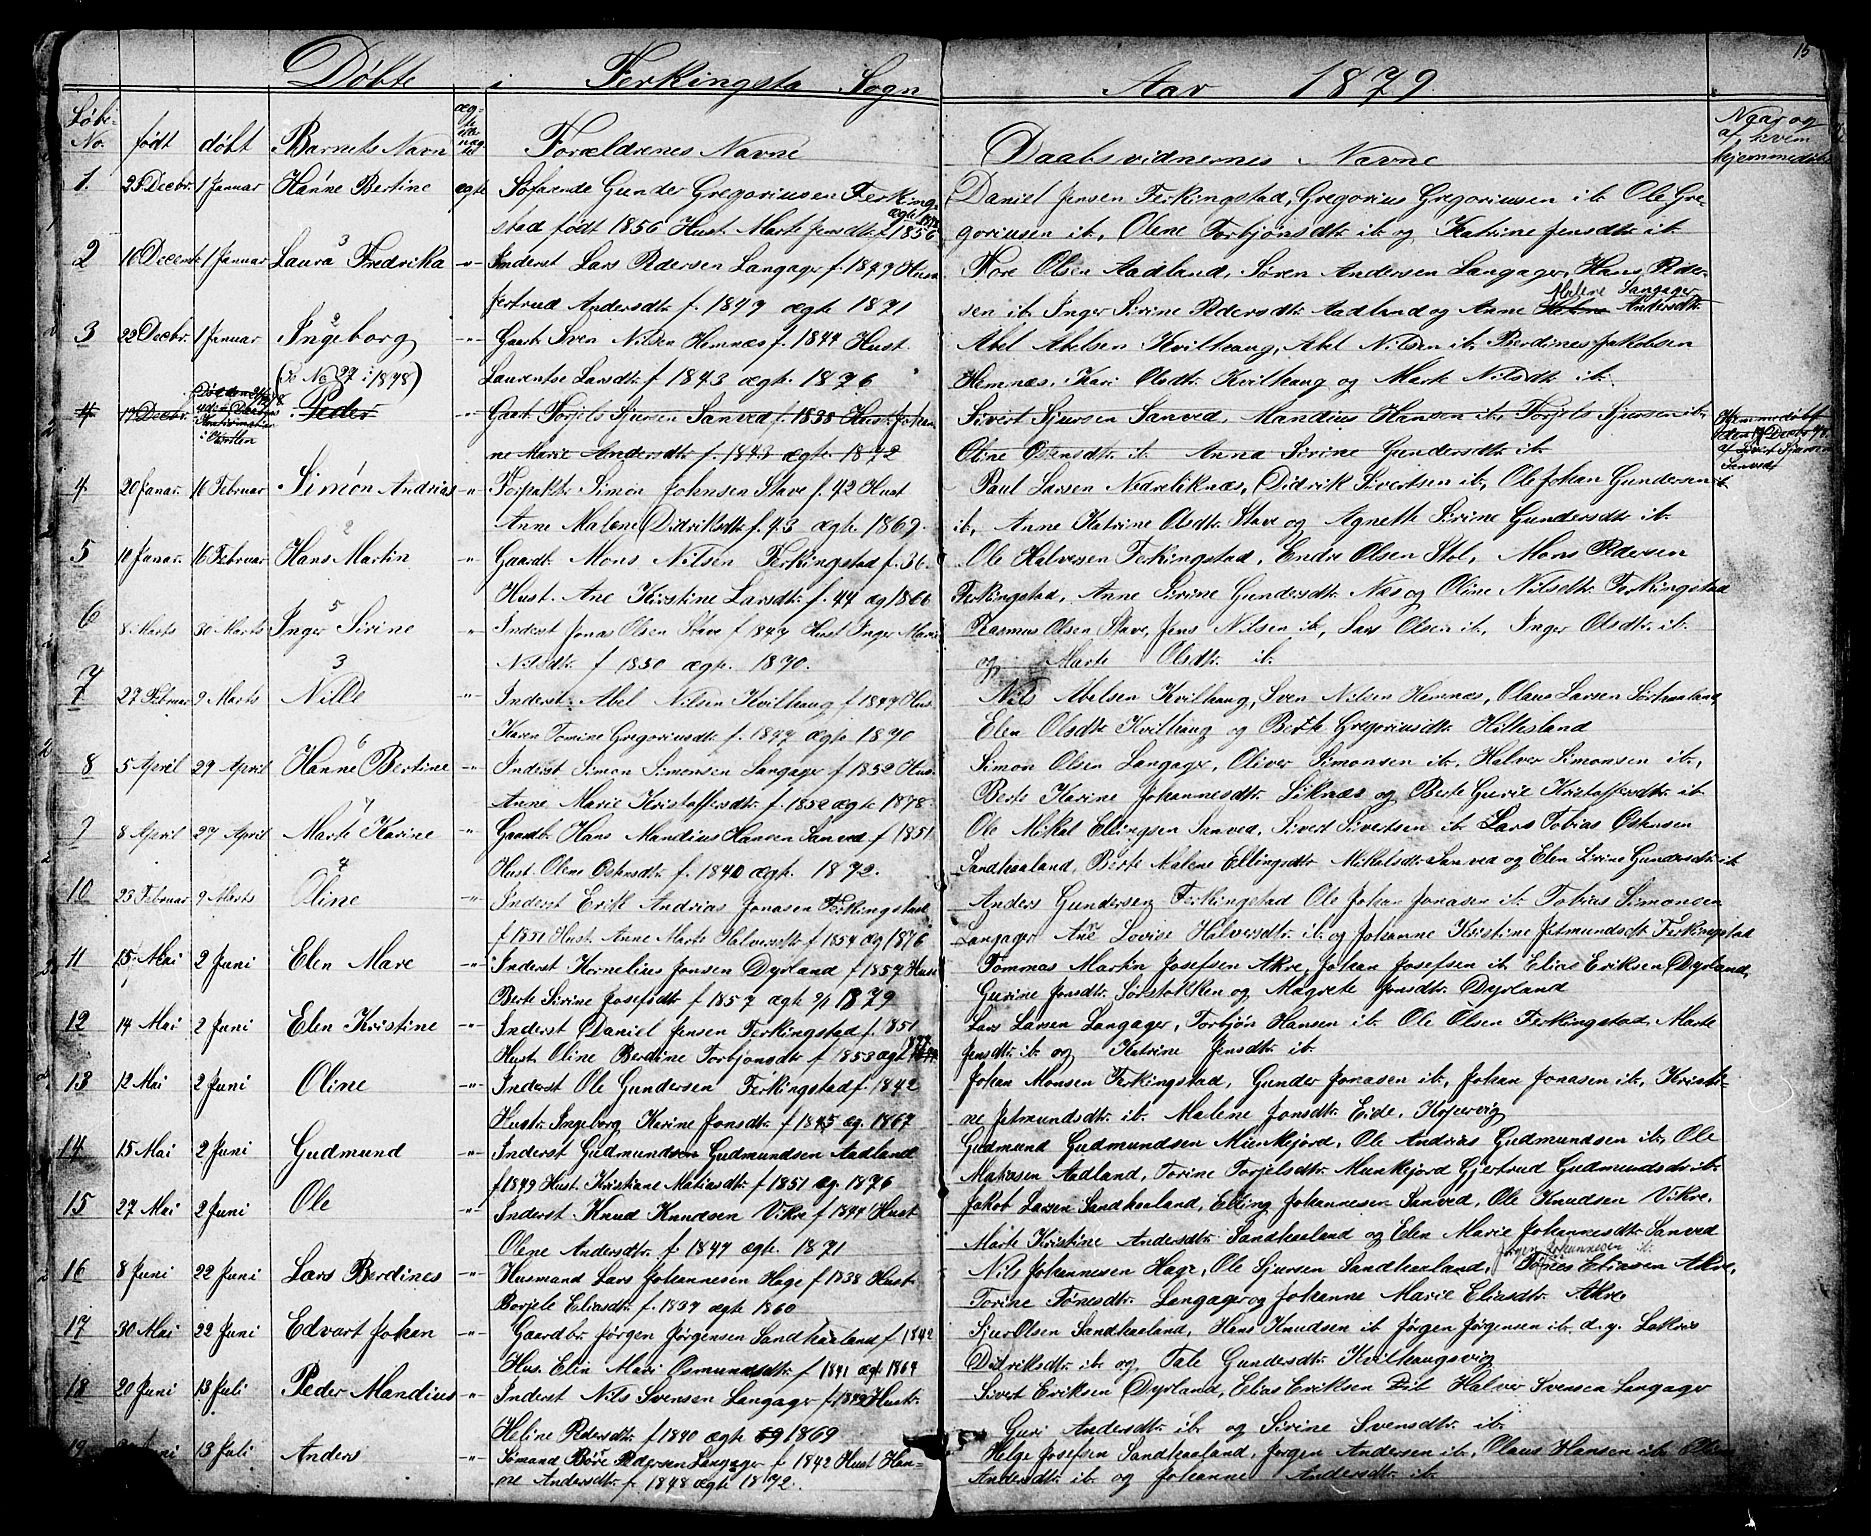 15
Døbte i Ferkingsta Sogn Aar 1879.
Løbe-No. født døbt Barnets Navn Forældrenes Navne Daabsvidnernes Navne Naar og af hvem hjemmedøbt
1. 25 Decbr. 1 Januar Hanne Bertine ægte Søfarende Gunder Gregoriusen Ferking- Daniel Jensen Ferkingstad, Gregorius Gregoriusen ib. Ole Gre-
stad født 1856 Hust. Marte Jensdtr. f 1856 goriusen ib, Olene Torbjønsdtr. ib. og Katrine Jensdtr. ib.
2 16 Decemb. 1 Januar Laura Fredrika -"- Inderst Lars Pedersen Langager f. 1849 Hust. Tore Olsen Aadland, Søren Andersen Langager, Hans Peder-
Jertrud Andersdtr. f. 1847 ægte 1871 sen ib. Inger Sirine Pedersdtr. Aadland og Anne Malene Andersdtr. Langager
3 22 Decbr. 1 Januar Ingeborg -"- Gaardb. Sven Nilsen Hemnæs f. 1844 Hust. Abel Abelsen Kvilhaug, Abel Nilsen ib. Berdines Jakobsen
(Se No 27 i 1878) Laurentse Larsdtr. f. 1843 ægte. 1876 Hemnæs, Kari Olsdtr. Kvilhaug og Marte Nilsdtr. ib.
4 17 Decbr. Peder -"- Gaardb. Torjels Sjursen Sanved f. 1838 Hust. Johan- Sivert Sjursen Sanved, Mandius Hansen ib, Torjels Sjursen ib, Hjemmedøbt
ne Marie Andersdtr. f. 1843 ægte. 1872 Oline Østensdtr. ib. Anna Sirine Gundersdtr. ib. af Sivert Sjursen Sanved
4 20 Januar. 16 Februar Simon Andrias -"- Forpakt. Simon Johnsen Stave f. 42 Hust Paul Larsen Nedreliknæs, Didrik Sivertsen ib, Ole Johan Gundersen
Anne Malene Didriksdtr. f. 43 ægte 1869. ib, Anne Katrine Olsdtr. Stave og Agnethe Sirine Gundersdtr. ib.
5 10 Januar. 16 Februar Hans Martin -"- Gaardb. Mons Nilsen Ferkingstad f. 36. Ole Halversen Ferkingstad, Endre Olsen Stol, Mons Pedersen
Hust. Ane Kirstine Larsdtr. f. 44 æg 1866 Ferkingstad, Anne Sirine Gundersdtr. Næs og Oline Nilsdtr. Ferkingstad
6 8. Marts 30 Marts Inger Sirine -"- Inderst Jonas Olsen Stave f 1847 Hust Inger Marie Rasmus Olsen Stave, Jens Nilsen ib, Lars Olsen ib, Inger Olsdtr. ib.
Nilsdtr. f 1850 ægte. 1870. og Marte Olsdtr. ib.
7 27 Februar 9 Marts Nille -"- Inderst. Abel Nilsen Kvilhaug f 1847 Hus. Nils Abelsen Kvilhaug, Sven Nilsen Hemnæs, Olaus Larsen Sørhaaland,
Karen Tomine Gregoriusdtr. f. 1847 ægte 1870 Elen Olsdtr. Kvilhaug og Berte Gregoriusdtr. Hillesland
8 5 April 29 April Hanne Bertine -"- Inderst Simon Simonsen Langager f 1852 Hus. Simon Olsen Langager, Oliver Simonsen ib. Halver Simonsen ib,
Anne Marie Kristoffersdtr. f. 1852 ægte 1878. Berte Karine Johannesdtr. Liknæs og Berte Gurie Kristoffersdtr. ib
9 8 April 27 April Marte Karine -"- Gaardb. Hans Mandius Hansen Sanved f 1851 Ole Mikal Ellingsen Sanved, Sivert Sivertsen ib. Lars Tobias Østensen
Hust. Olene Ostensdtr. f. 1840 ægte. 1872. Sandhaaland, Berte Malene Ellingsdtr. Mikalsdtr. Sanved og Elen Sirine Gundersdtr. ib
10 23 Februar 9 Marts Oline -"- Inderst Erik Andrias Jonasen Ferkingstad Anders Gundersen Ferkingstad Ole Johan Jonasen ib. Tobias Simonsen
f 1851 Hust. Anne Marte Halversdtr f 1854 æg 1876 Langager Ane Lovise Halversdtr. ib. og Johanne Kristine Jetmundsdtr. Ferkingstad
11 15 Mai 2 Juni Elen Mare -"- Inderst Kornelius Jonsen Dyrland f 1857 Hust Tommas Martin Josefsen Akre, Johan Josefsen ib. Elias Eriksen Dyrland,
Berte Sirine Josefsdtr. f 1857 ægte 1879 Gurine Jonsdtr. Sørstokken og Magrete Jonsdtr. Dyrland
12 14 Mai 2 Juni Elen Kristine -"- Inderst Daniel Jensen Ferkingstad f. 1851 Lars Larsen Langager, Torbjøn Hansen ib. Ole Olsen Ferkingstad, Marte
Hust. Oline Berdine Torbjonsdtr. f 1853 ægt Jensdtr. ib. og Katrine Jensdtr. ib.
13 12 Mai 2 Juni Oline -"- Inderst Ole Gundersen Ferkingstad f. 1842 Johan Monsen Ferkingstad, Gunder Jonasen ib, Johan Jonasen ib, Kristi-
Hust. Ingeborg Karine Jonsdtr. f 1845 æg. 1867 ne Jetmundsdtr. ib. Malene Jonsdtr. Eide, Kopervig
14 15 Mai 2 Juni Gudmund -"- Inderst Gudmundsen Gudmundsen Aadland Gudmund Gudmundsen Munkejord, Ole Andrias Gudmundsen ib, Ole
f 1849 Hust. Kristiane Matiasdtr. f 1851 æg. 1876 Matiasen Aadland, Torine Torjelsdtr. Munkejord Gjertrud Gudmundsdtr. ib.
15 27 Mai 2 Juni Ole -"- Inderst. Knud Knudsen Vikre f 1844 Hust Jakob Larsen Sandhaaland, Elling Johannesen Sanved, Ole Knudsen Vikre.
Olene Andersdtr. f. 1847 ægte. 1871 Marte Kristine Andersdtr. Sandhaaland og Elen Marie Johannesdtr. Sanved
16 8 Juni 22 Juni Lars Berdines -"- Husmand Lars Johannesen Hage f 1838 Hust. Nils Johannesen Hage, Ole Sjursen Sandhaaland, Jørgen Johannesen ib. Tønes Eliasen Akre,
Borjele Eliasdtr. f. 1837 ægte 1860 Torine Tønesdtr. Langager og Johanne Marie Eliasdtr. Akre
17 30 Mai 22 Juni Edvart Johan -"- Gaardbr. Jørgen Jørgensen Sandhaaland f 1842 Sjur Olsen Sandhaaland, Hans Knudsen ib Jørgen Jørgensen ib. d. y. Lakris
Hus. Elin Mari Osmundsdtr. f 1841 ægt 1864 Didriksdtr. ib. og Tale Gundersdtr. Kvilhaugsvig
18 20 Juni 13 Juli Peder Mandius -"- Inderst Nils Svensen Langager f. 1842 Hust. Sivert Eriksen Dyrland, Elias Eriksen ib Halver Svensen Langager
Heline Pedersdtr. f 1840 ægte 1869 Guri Andersdtr. ib. og Sirine Svensdtr. ib.
19 Juni 13 Juli Anders -"- Sømand Bore Pedersen Langager f 1842 Hust Han- Helge Josefsen Sandhaaland, Jørgen Andersen ib, Olaus Hansen ib.
ne Andersdtr. f. 1848 ægte 1872. Andersdtr. ib. og Johanne Andersdtr. ib.